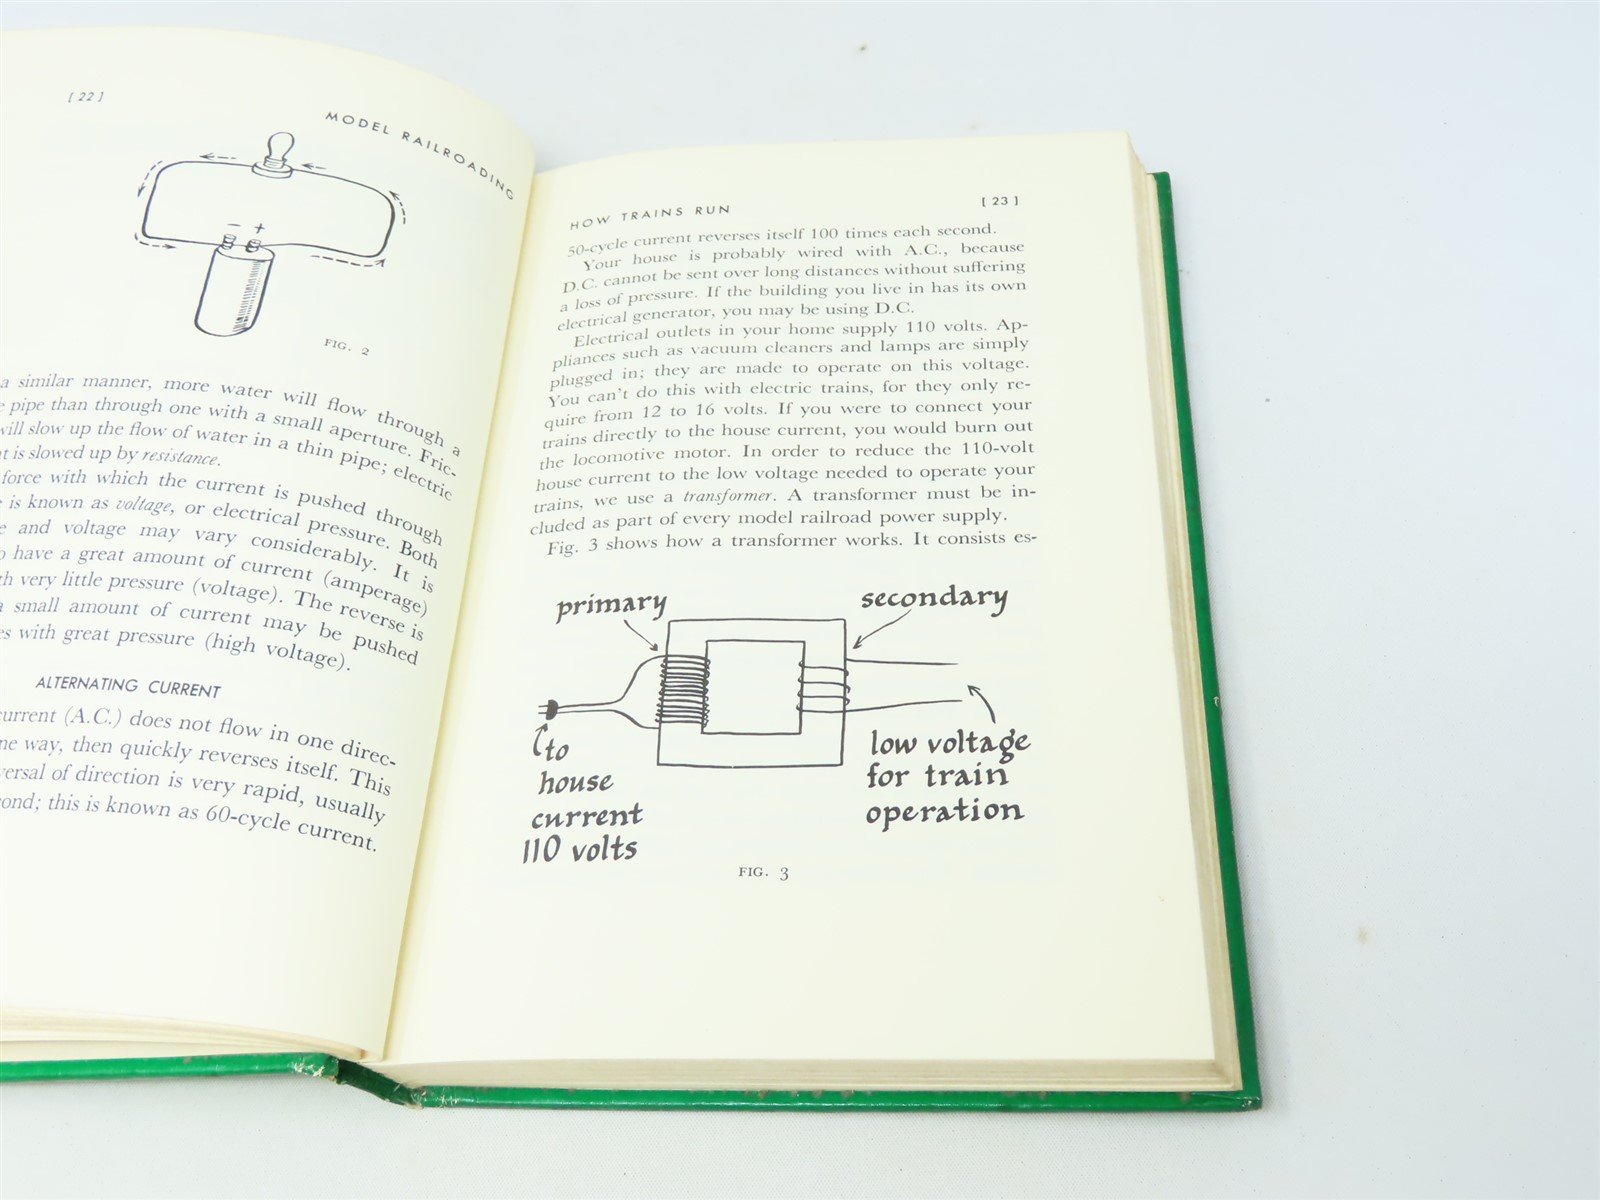 [ 22 ]
MODEL RAILROADING
− +
FIG. 2
a similar manner, more water will flow through a
pipe than through one with a small aperture. Fric-
will slow up the flow of water in a thin pipe; electric
is slowed up by resistance.
force with which the current is pushed through
is known as voltage, or electrical pressure. Both
and voltage may vary considerably. It is
have a great amount of current (amperage)
very little pressure (voltage). The reverse is
a small amount of current may be pushed
with great pressure (high voltage).
ALTERNATING CURRENT
current (A.C.) does not flow in one direc-
way, then quickly reverses itself. This
of direction is very rapid, usually
this is known as 60-cycle current.
HOW TRAINS RUN
[ 23 ]
50-cycle current reverses itself 100 times each second.
Your house is probably wired with A.C., because
D.C. cannot be sent over long distances without suffering
a loss of pressure. If the building you live in has its own
electrical generator, you may be using D.C.
Electrical outlets in your home supply 110 volts. Ap-
pliances such as vacuum cleaners and lamps are simply
plugged in; they are made to operate on this voltage.
You can't do this with electric trains, for they only re-
quire from 12 to 16 volts. If you were to connect your
trains directly to the house current, you would burn out
the locomotive motor. In order to reduce the 110-volt
house current to the low voltage needed to operate your
trains, we use a transformer. A transformer must be in-
cluded as part of every model railroad power supply.
Fig. 3 shows how a transformer works. It consists es-
primary
secondary
to
house
current
110 volts
low voltage
for train
operation
FIG. 3